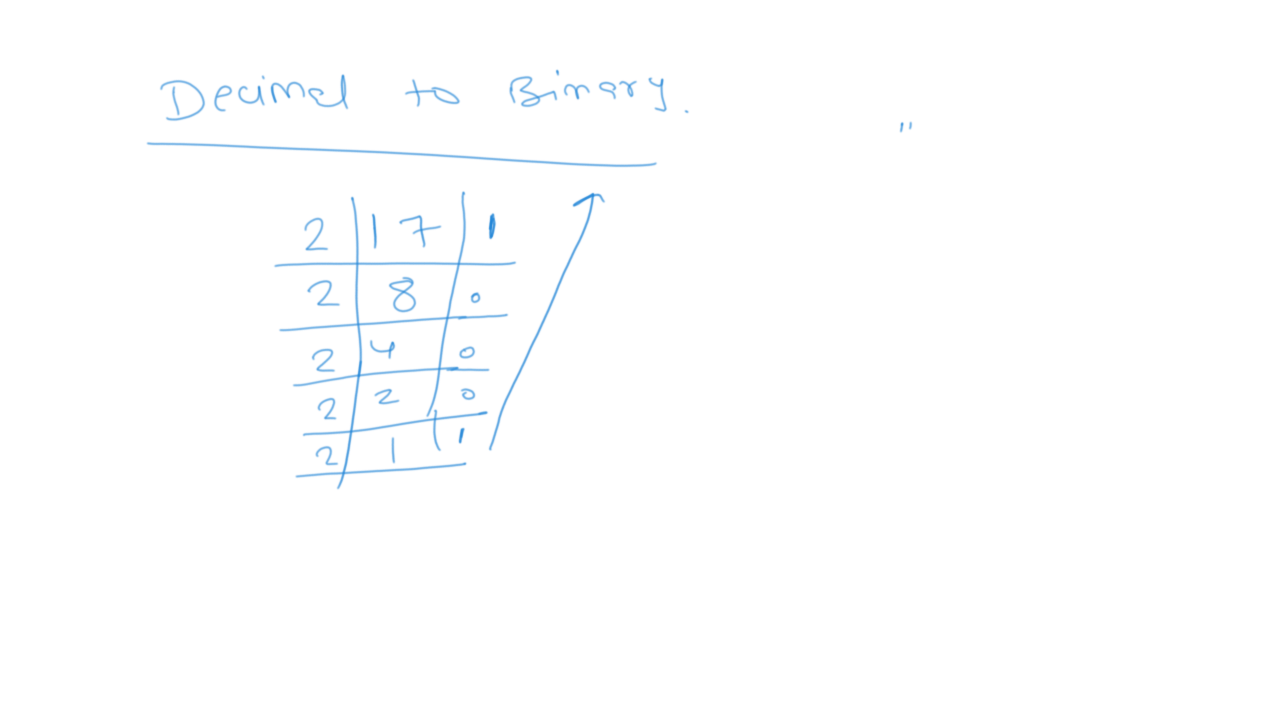 Decimal to Binary.
"
2 17 1
2 8 0
2 4 0
2 2 0
2 1 1